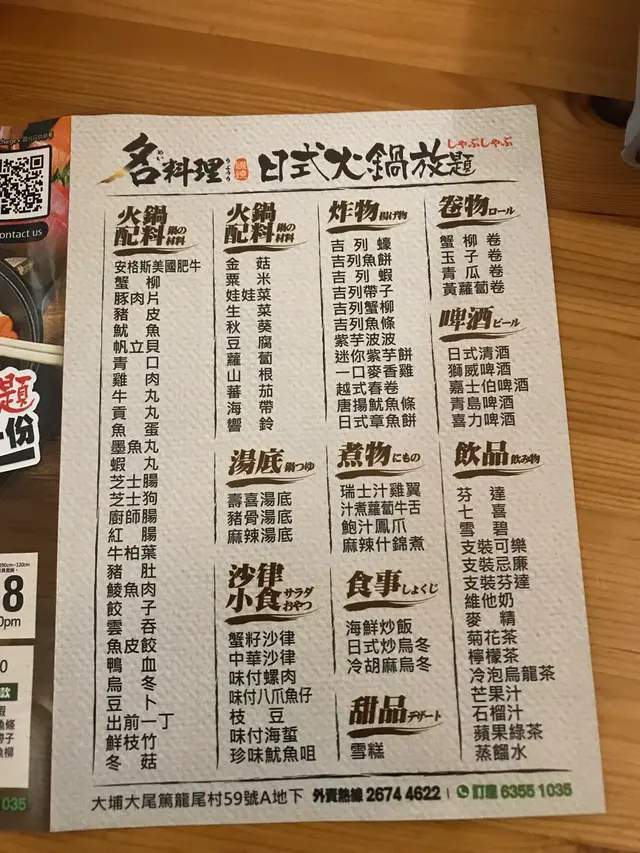 contact us
名料理
めいりょうり
日式火鍋放題
しゃぶしゃぶ
火鍋
配料 鍋の材料
安格斯美國肥牛
蟹柳
豚肉片
豬皮
魷魚
帆立貝
青口
雞肉
牛丸
貢丸
魚蛋
墨魚丸
蝦丸
芝士腸
芝士狗
廚師腸
紅腸
牛柏葉
豬肚
鯪魚肉
餃子
雲吞
魚皮餃
鴨血
烏冬
豆卜
出前一丁
鮮枝竹
冬菇
火鍋
配料 鍋の材料
金菇
粟米
娃娃菜
生菜
秋葵
豆腐
蘿蔔
山根
番茄
海帶
響鈴
湯底 鍋つゆ
壽喜湯底
豬骨湯底
麻辣湯底
沙律
小食 サラダ おやつ
蟹籽沙律
中華沙律
味付螺肉
味付八爪魚仔
枝豆
味付海蜇
珍味魷魚咀
炸物 揚げ物
吉列蠔
吉列魚餅
吉列蝦
吉列帶子
吉列蟹柳
吉列魚條
紫芋波波
迷你紫芋餅
一口麥香雞
越式春卷
唐揚魷魚條
日式章魚餅
煮物 にもの
瑞士汁雞翼
汁煮蘿蔔牛舌
鮑汁鳳爪
麻辣什錦煮
食事 しょくじ
海鮮炒飯
日式炒烏冬
冷胡麻烏冬
甜品 デザート
雪糕
卷物 ロール
蟹柳卷
玉子卷
青瓜卷
黃蘿蔔卷
啤酒 ビール
日式清酒
獅威啤酒
嘉士伯啤酒
青島啤酒
喜力啤酒
飲品 飲み物
芬達
七喜
雪碧
支裝可樂
支裝忌廉
支裝芬達
維他奶
麥精
菊花茶
檸檬茶
冷泡烏龍茶
芒果汁
石榴汁
蘋果綠茶
蒸餾水
大埔大尾篤龍尾村59號A地下 外賣熱線 2674 4622 | 訂座 6355 1035